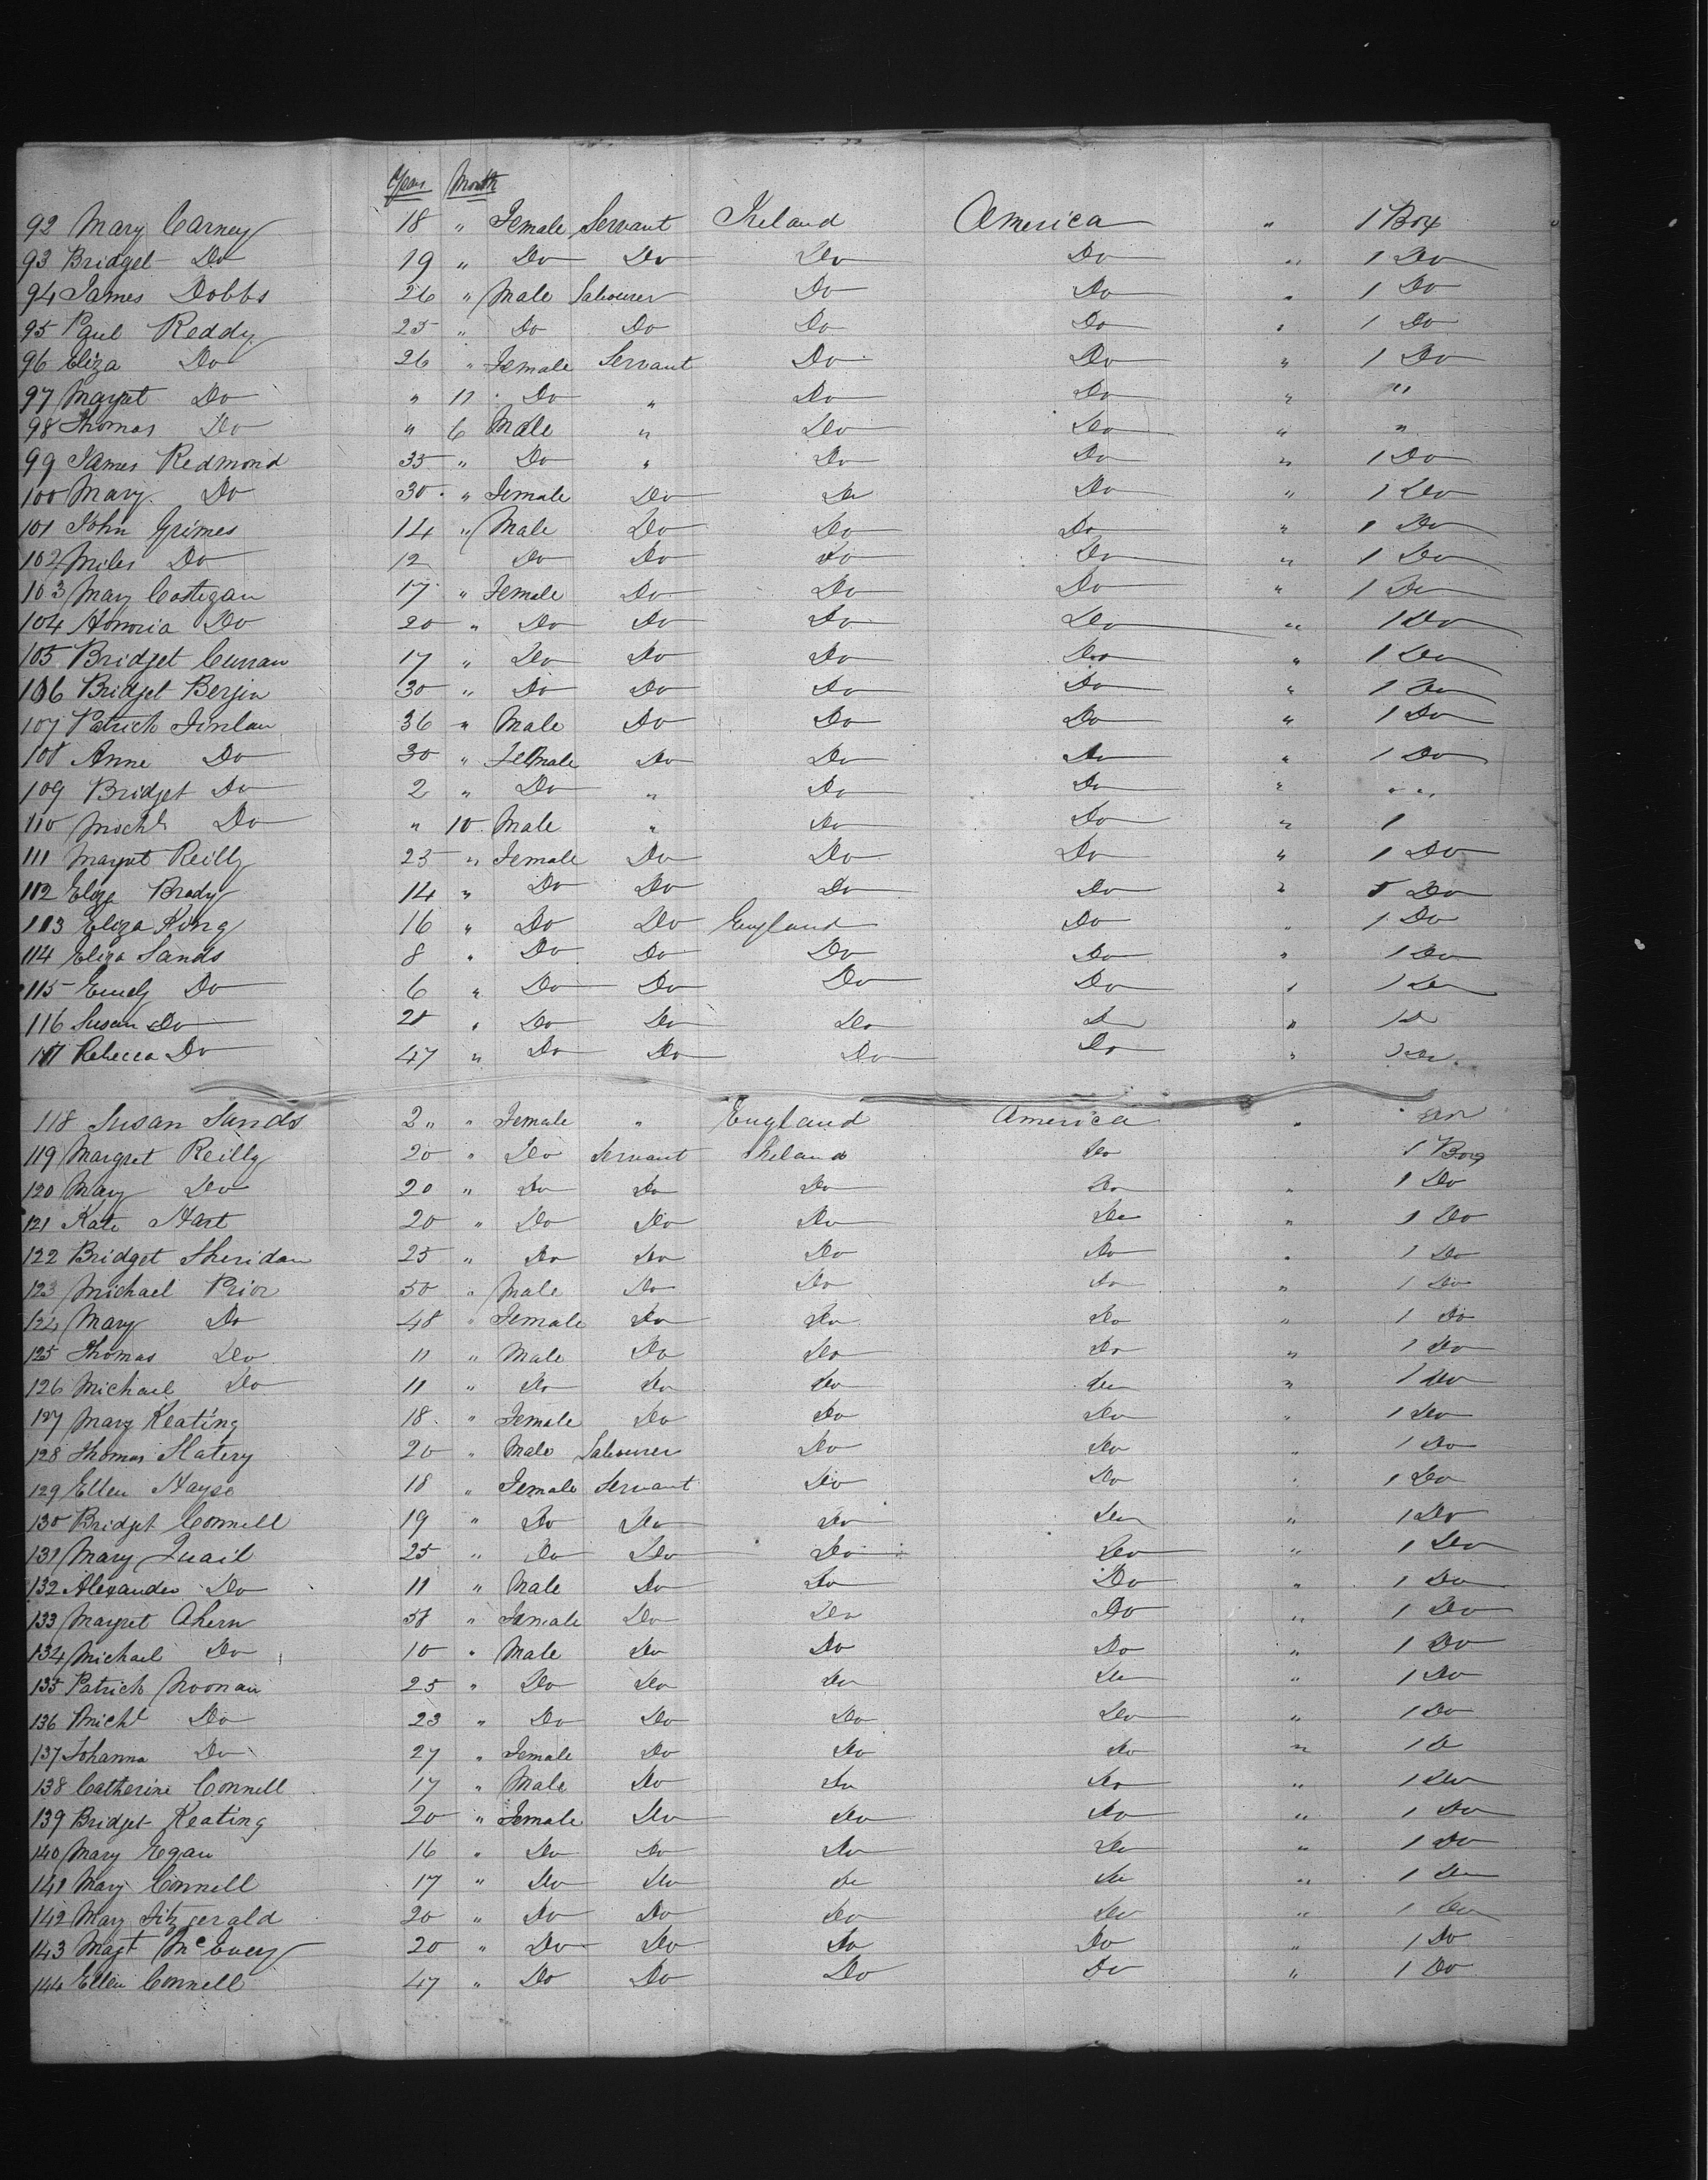 Years Month
92 Mary Carney 18 " Female Servant Ireland America " 1 Box
93 Bridget Do 19 " Do Do Do Do " 1 Do
94 James Dobbs 26 " Male Labourer Do Do " 1 Do
95 Paul Reddy 25 " Do Do Do Do " 1 Do
96 Eliza Do 26 " Female Servant Do Do " 1 Do
97 Margret Do " 11 Do " Do Do " "
98 Thomas Do " 6 Male " Do Do " "
99 James Redmond 35 " Do " Do Do " 1 Do
100 Mary Do 30 " Female Do Do Do " 1 Do
101 John Grimes 14 " Male Do Do Do " 1 Do
102 Miles Do 12 Do Do Do Do " 1 Do
103 Mary Costegan 17 " Female Do Do Do " 1 Do
104 Honoria Do 20 " Do Do Do Do " 1 Do
105 Bridget Curran 17 " Do Do Do Do " 1 Do
106 Bridget Bergin 30 " Do Do Do Do " 1 Do
107 Patrick Finlan 36 " Male Do Do Do " 1 Do
108 Anne Do 30 " Female Do Do Do " 1 Do
109 Bridget Do 2 " Do " Do Do " " "
110 Michl Do " 10 Male " Do Do " 1
111 Margret Reilly 25 " Female Do Do Do " 1 Do
112 Eliza Brady 14 " Do Do Do Do " Do
113 Eliza King 16 " Do Do England Do " 1 Do
114 Eliza Sands 8 " Do Do Do Do " 1 Do
115 Emely Do 6 " Do Do Do Do " 1 Do
116 Susan Do " Do Do Do Do " 1 Do
117 Rebecca Do 47 " Do Do Do Do " Do
118 Susan Sands 2 " " Female " England America "
119 Margret Reilly 20 " Do Servant Ireland Do 1 Box
120 Mary Do 20 " Do Do Do Do " 1 Do
121 Kate Hart 20 " Do Do Do Do " 1 Do
122 Bridget Sheridan 25 " Do Do Do Do " 1 Do
123 Michael Prior 50 " Male Do Do Do " 1 Do
124 Mary Do 48 " Female Do Do Do " 1 Do
125 Thomas Do 11 " Male Do Do Do " 1 Do
126 Michael Do 11 " Do Do Do Do " 1 Do
127 Mary Keating 18 " Female Do Do Do " 1 Do
128 Thomas Slatery 20 " Male Labourer Do Do " 1 Do
129 Ellen Hayse 18 " Female Servant Do Do " 1 Do
130 Bridget Connell 19 " Do Do Do Do " 1 Do
131 Mary Quail 25 " Do Do Do Do " 1 Do
132 Alexander Do 11 " Male Do Do Do " 1 Do
133 Margret Ahern " Female Do Do Do " 1 Do
134 Michael Do 10 " Male Do Do Do " 1 Do
135 Patrick Noonan 25 " Do Do Do Do " 1 Do
136 Michl Do 23 " Do Do Do Do " 1 Do
137 Johanna Do 27 " Female Do Do Do " 1 Do
138 Catherine Connell 17 " Male Do Do Do " 1 Do
139 Bridget Keating 20 " Female Do Do Do " 1 Do
140 Mary Egan 16 " Do Do Do Do " 1 Do
141 Mary Connell 17 " Do Do Do Do " 1 Do
142 Mary Fitzgerald 20 " Do Do Do Do " 1 Do
143 Magt McEvey 20 " Do Do Do Do " 1 Do
144 Ellen Connell 47 " Do Do Do Do " 1 Do